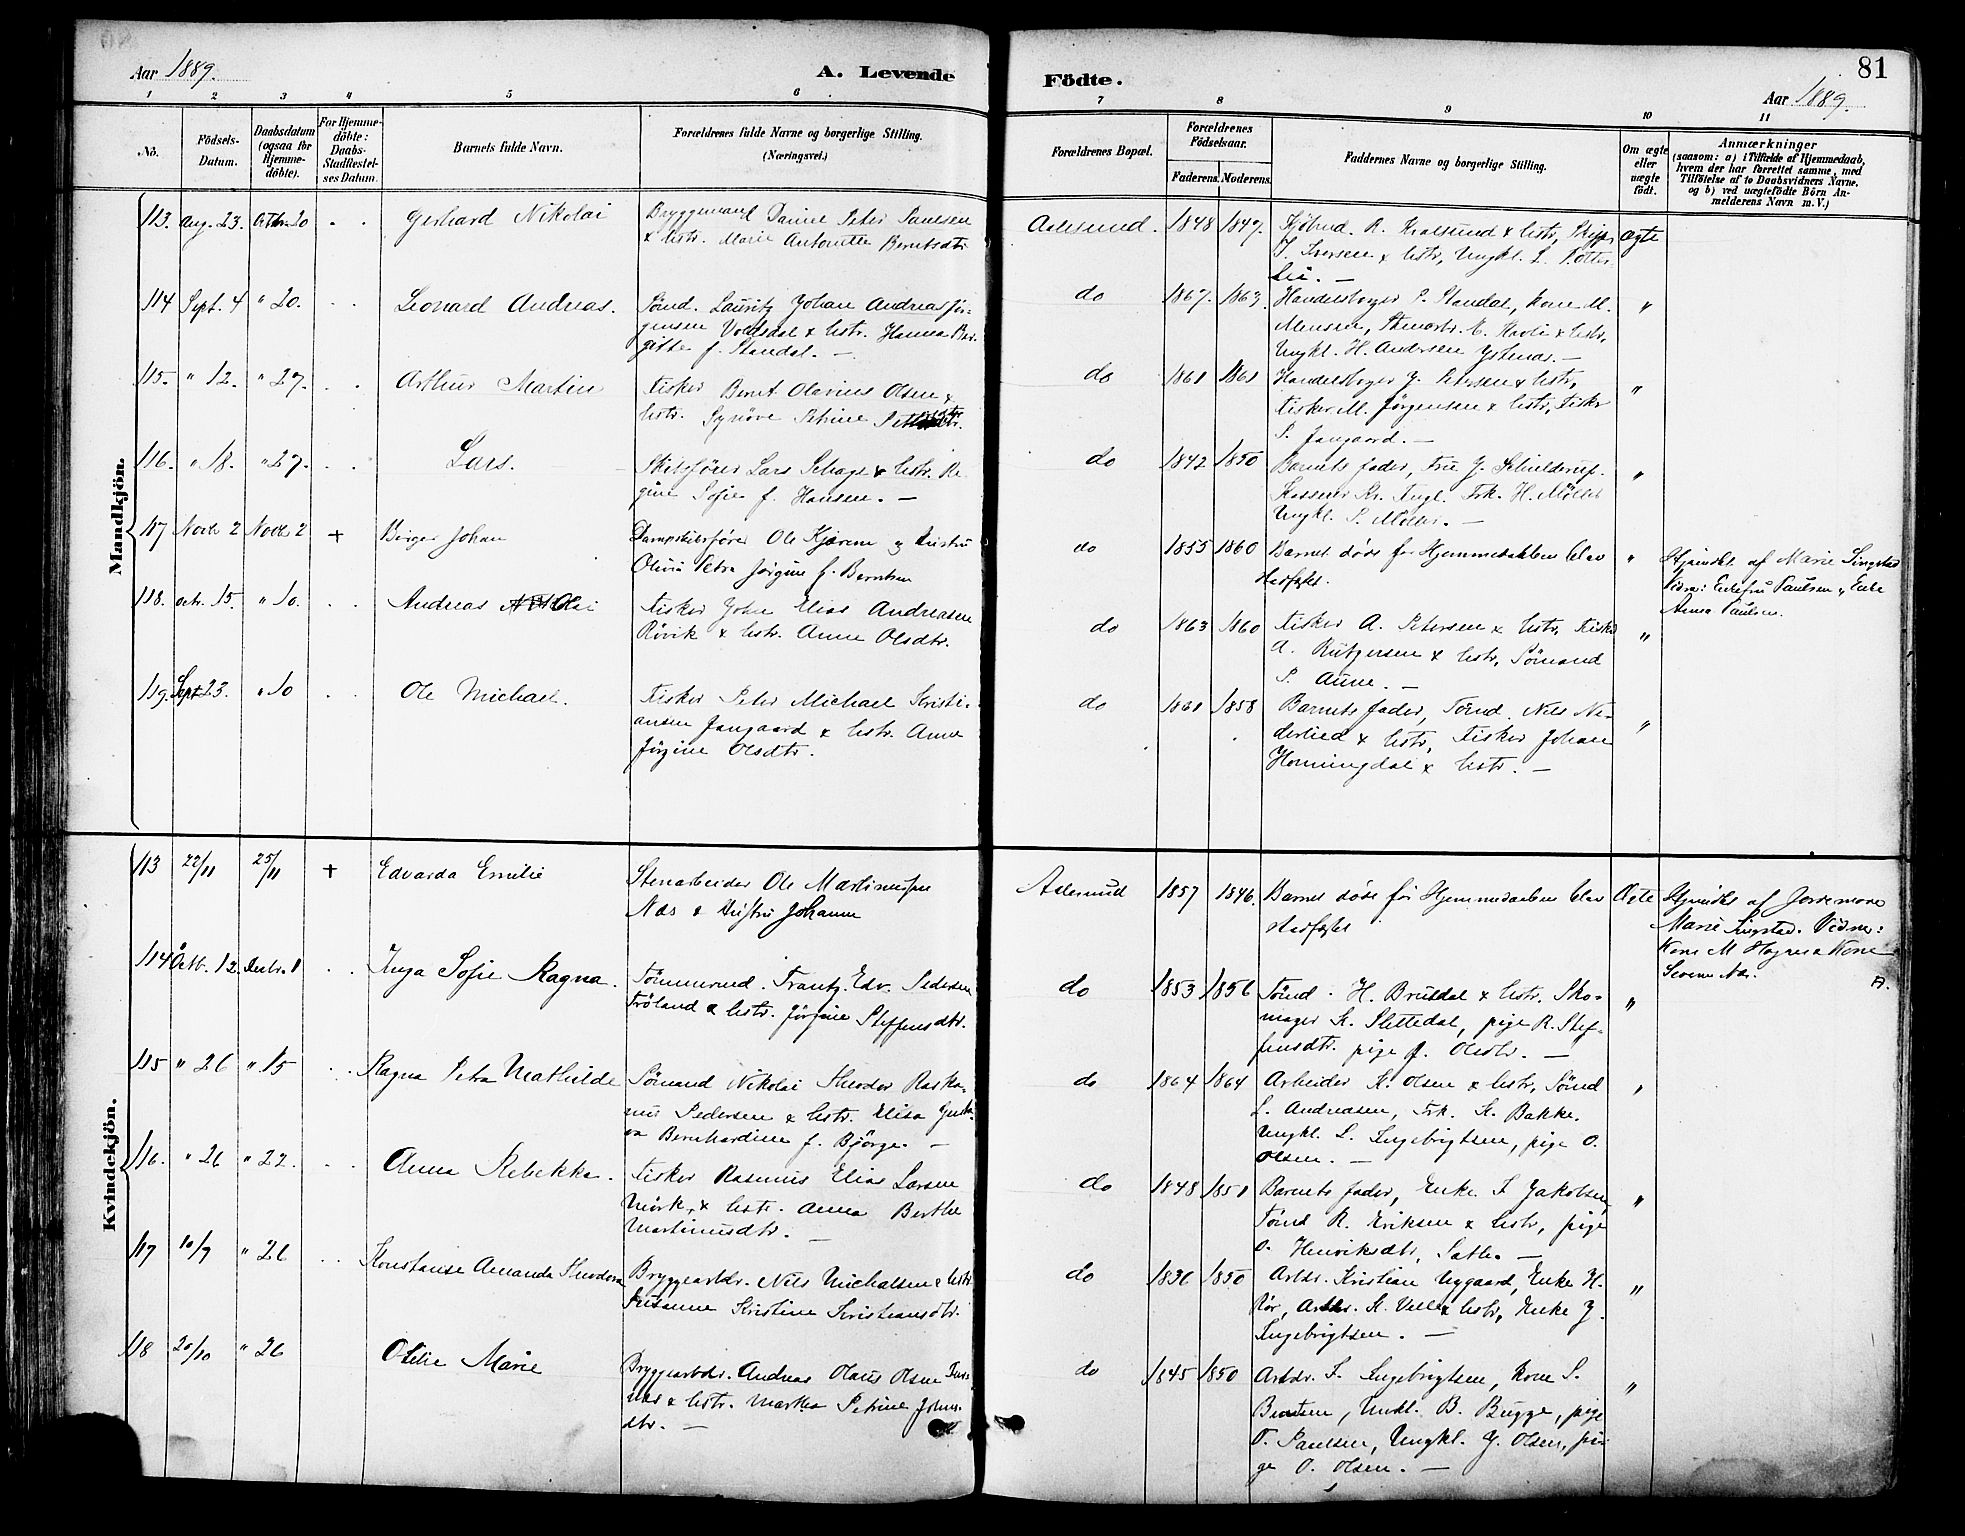 Aar 1889.
A. Levende
Födte.
81
Aar 1889.
1 2 3 4 5 6 7 8 9 10 11
No.
Födsels-
Datum.
Daabsdatum
(ogsaa for
Hjemme-
döbte).
For Hjemme-
döbte:
Daabs-
Stadfæstel-
ses Datum.
Barnets fulde Navn.
Forældrenes fulde Navne og borgerlige Stilling.
(Næringsvei.)
Forældrenes Bopæl.
Forældrenes
Födselsaar.
Faderens. Moderens.
Faddernes Navne og borgerlige Stilling.
Om ægte
eller
uægte
födt.
Anmærkninger
(saasom: a) i Tilfælde af Hjemmedaab,
hvem der har forrettet samme, med
Tilföielse af to Daabsvidners Navne.
og b) ved uægtefödte Börn An-
melderens Navn m.V.)
Mandkjön.
113. Aug. 23. 20 Gerhard Nikolai
Bryggemand Peter Paulsen
& Hstr. Marie Antonette Berntsdtr
Aalesund. 1848 1847.
& Hstr, Ungkl. L.
ægte
114 Sept. 4 " 20. Leonard Andreas.
Sömd. Lauritz Johan Andreas Jör-
gensen Voldsdal & Hstr. Hanna Bir-
gitte f. Standal. —
do 1867. 1863
P. Standal, Kone M.
& Hstr,
Ungkl. H. Andersen Ystenæs. —
"
115. " 12. " 27. Arthur Martin
Fisker Bernt Olavius Olsen &
Hstr. Synöve Petrine
do 1861 1861
J. Petersen & Hstr,
Fisker M. Jörgensen & Hstr, Fisker
S. Jangaard. —
"
116. " 18. " 27. Lars.
Skibsförer Lars & Hstr. Re-
gine Sofie f. Hansen. —
do 1842 1850
Barnets fader, Fru J. Schjelderup.
Kasserer Kr. Frk. H. Möller
Ungkl. S. Möller. —
"
117 Novb 2 Novb 2 + Birger Johan
Dampskibsförer Ole og Hustru
Olivia Petra Jörgine f. Berntsen
do 1855 1860
Barnet döde för Hjemmedaaben blev
stadfæstet.
"
Hjemdbt. af Marie Singstad
Vidne: Enkefru Paulsen, Enke
Anna Paulsen.
118. Octr. 15. " 10. Andreas Nikolai
Fisker John Elias Andreasen
Rövik & Hstr. Anne Olsdtr.
do 1863 1860
Fisker A. Petersen & Hstr, Fisker
A. Rutgersen & Hstr, Sömand
P. Aune. —
"
119. Sept 23. " 10 Ole Michael.
Fisker Peter Michael Kristi-
ansen Jangaard & Hstr. Anne
Jörgine Olsdtr.
do 1861 1858
Barnets fader, Tömd. Nils Ne-
derlied & Hstr, Fisker Johan
Honningdal & Hstr. —
"
Kvindekjön.
113 22/11 25/11 + Edvarda Emilie
Stenarbeider Ole Martinussen
Næs & Hustru Johanne
Aalesund 1857 1846.
Barnet döde för Hjemmedaaben blev
stadfæstet
Ægte
Hjemdbt af Jordemore
Marie Singstad. Vidne:
Kone M Hognes & Kone
Severine Næs.
114 Octb. 12. Decbr. 1 Inga Sofie Ragna.
Tömmermd. Frantz Edv. Pedersen
Fröland & Hstr. Jörgine Steffensdtr.
do 1853 1856
Tömd. H. Brusdal & Hstr. Sko-
mager K. Slettedal, pige R. Stef-
fensdtr. pige J. Olsdtr. —
"
115 " 26 " 15 Ragna Petra Mathilde
Sömand Nikolai Theodor Rasmus
Pedersen & Hstr. Elisa
Bernhardine f. Björge. —
do 1864 1864
Arbeider K. Olsen & Hstr, Sömd
L. Andreasen, Frk. K. Bakke.
Ungkl. L. Ingebrigtsen, pige O.
Olsen. —
"
116. " 26 " 22. Anna Rebekka.
Fisker Rasmus Elias Larsen
Mörk, & Hstr. Anna Berthe
Martinusdtr. —
do 1848 1851
Barnets fader, Enke S Jakobsen,
Tömd R. Eriksen & Hstr, pige
O. Henriksdtr, Sætre. —
"
117 10/9 " 26 Konstanse Amanda Theodora
Bryggearbdr. Nils Michalsen & Hstr
Susanne Kristine Kristiansdtr.
do 1836 1850
Arbdr. Kristian Nygaard, Enke H.
Rör, Arbdr. K. & Hstr, Enke J.
Ingebrigtsen. —
"
118 20/10 " 26 Otilie Marie
Bryggearbdr. Andreas Olaus Olsen
& Hstr. Marthea Petrine Johns-
dtr. —
do 1845 1850
Arbdr. S. Ingebrigtsen, Kone S.
Berntsen, Ungkl. B. Bugge, pige
O. Paulsen, Ungkl. J. Olsen, pi-
ge O. Olsen. —
"